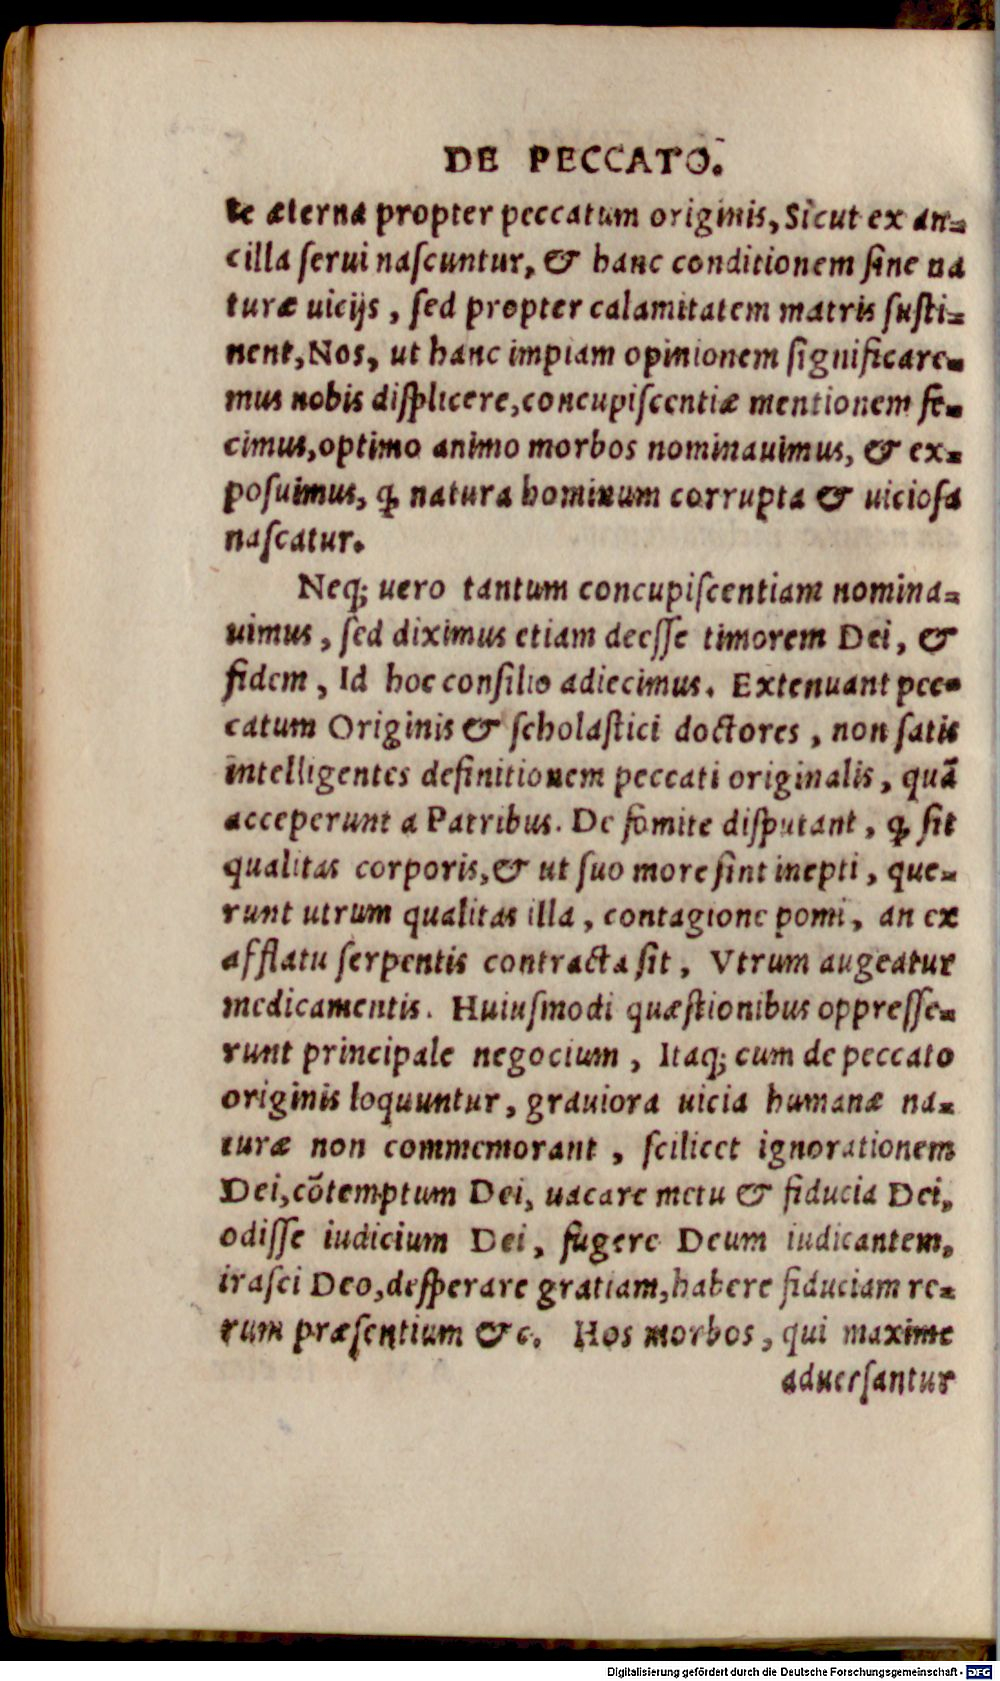 DE PECCATO.
te æterna propter peccatum originis, Sicut ex an=
cilla ſerui naſcuntur, & hanc conditionem ſine na
turæ uicijs, ſed propter calamitatem matris ſuſti=
nent, Nos, ut hanc impiam opinionem ſignificare=
mus nobis diſplicere, concupiſcentiæ mentionem fe=
cimus, optimo animo morbos nominauimus, & ex=
poſuimus, ꝙ natura hominum corrupta & uicioſa
naſcatur.
Neq; uero tantum concupiſcentiam nomina=
uimus, ſed diximus etiam deeſſe timorem Dei, &
fidem, Id hoc conſilio adiecimus. Extenuant pec=
catum Originis & ſcholaſtici doctores, non ſatis
intelligentes definitionem peccati originalis, quã
acceperunt a Patribus. De fomite diſputant, ꝙ ſit
qualitas corporis, & ut ſuo more ſint inepti, que=
runt utrum qualitas illa, contagione pomi, an ex
afflatu ſerpentis contracta ſit, Vtrum augeatur
medicamentis. Huiuſmodi quæſtionibus oppreſſe=
runt principale negocium, Itaq; cum de peccato
originis loquuntur, grauiora uicia humanæ na=
turæ non commemorant, ſcilicet ignorationem
Dei, cõtemptum Dei, uacare metu & fiducia Dei,
odiſſe iudicium Dei, fugere Deum iudicantem,
iraſci Deo, deſperare gratiam, habere fiduciam re=
rum præſentium &c. Hos morbos, qui maxime
aduerſantur
Digitalisierung gefördert durch die Deutsche Forschungsgemeinschaft - DFG